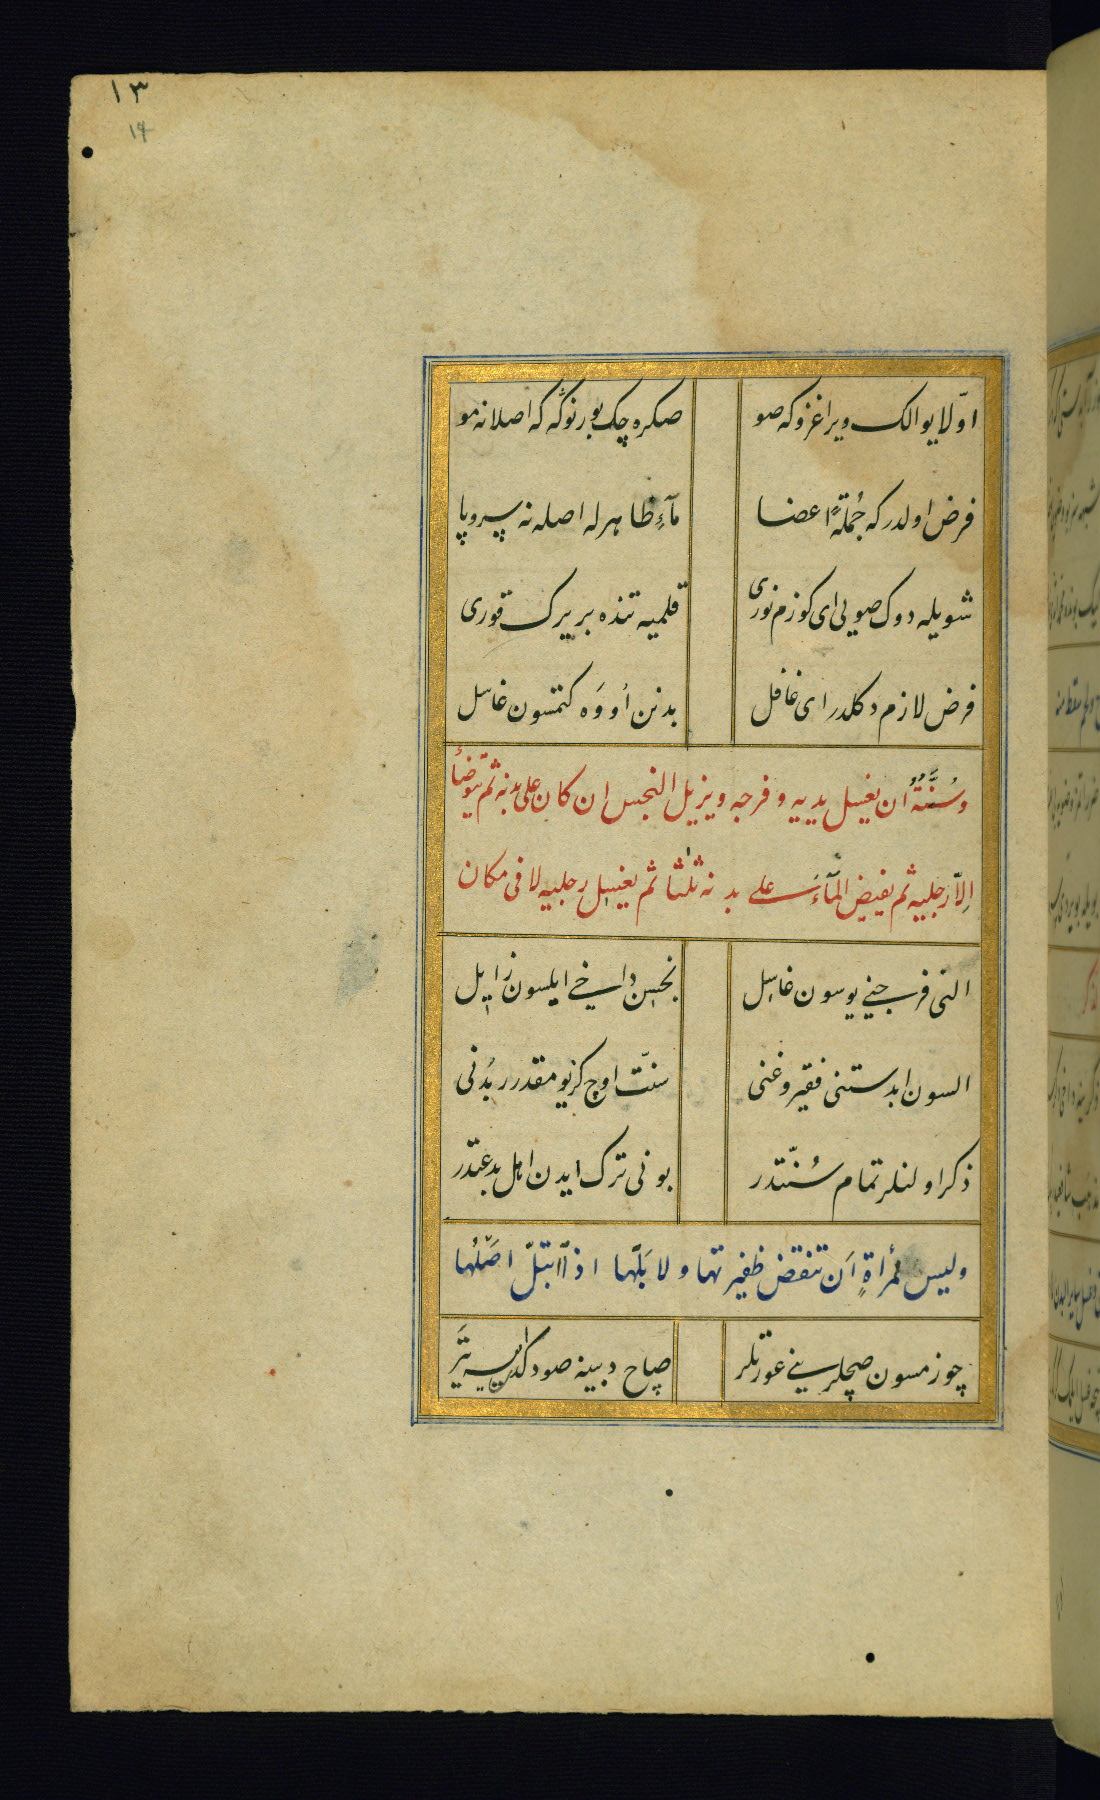 ١٣
١٤
اوّلا يو الك وير اغزوكه صو صكره چك بورنوڭه كه اصلانه مو
فرض اولدر كه جُملةً اعضا مآءِ ظاهرله اصله نه سر و پا
شويله دوك صويى اى كوزم نورى قلميه تنده بر يرك قورى
فرض لازم دكلدر اى غافل بدنن أووَه كتمسون غاسل
وسُنَّتُهُ ان يغسل يديه و فرجه و يزيل النجس ان كان على بدنه ثم يتوضأ
اِلّا رجليه ثم يفيض المآءَ على بدنه ثلثا ثم يغسل رجليه لا فى مكان
النى فرجنى يوسون غاسِل نجسن داخى ايلسون زايل
السون ابدستنى فقير و غنى سنّت اوچ كز يومقدر بدنى
ذكر اولنلر تمام سُنّتدر بونى ترك ايدن اهل بدعتدر
وليس لمرأةٍ اَن تنقض ظفيرتها ولا بَلّها اذا ابتلّ اصَلُها
چوزمسون صچلرينى عورتلر صاچ دبينه صو دكريسه يتَر